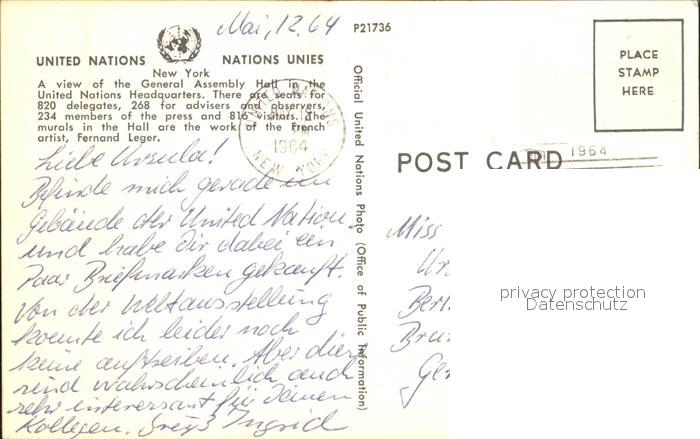 Mai, 12. 64
P21736
UNITED NATIONS NATIONS UNIES
New York
A view of the General Assembly Hall in the
United Nations Headquarters. There are seats for
820 delegates, 268 for advisers and observers,
234 members of the press and 816 visitors. The
murals in the Hall are the work of the French
artist, Fernand Leger.
UNITED NATIONS
1964
NEW YORK
Liebe Ursula!
Befinde mich gerade im
Gebäude der United Nation.
und habe dir dabei ein
Paar Briefmarken gekauft.
Von der Weltausstellung
konnte ich leider noch
keine auftreiben. Aber diese
sind wahrscheinlich auch
sehr interessant für Deinen
Kollegen. Gruß Ingrid
Official United Nations Photo (Office of Public Information)
PLACE
STAMP
HERE
1964
POST CARD
Miss
Ur.
Berl.
Bru
Ger
privacy protection
Datenschutz